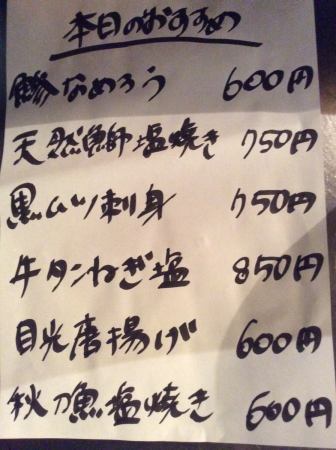 本日のおすすめ
鯵なめろう 600円
天然鰤塩焼き 750円
黒ムツ刺身 750円
牛タンねぎ塩 850円
目光唐揚げ 600円
秋刀魚塩焼き 600円